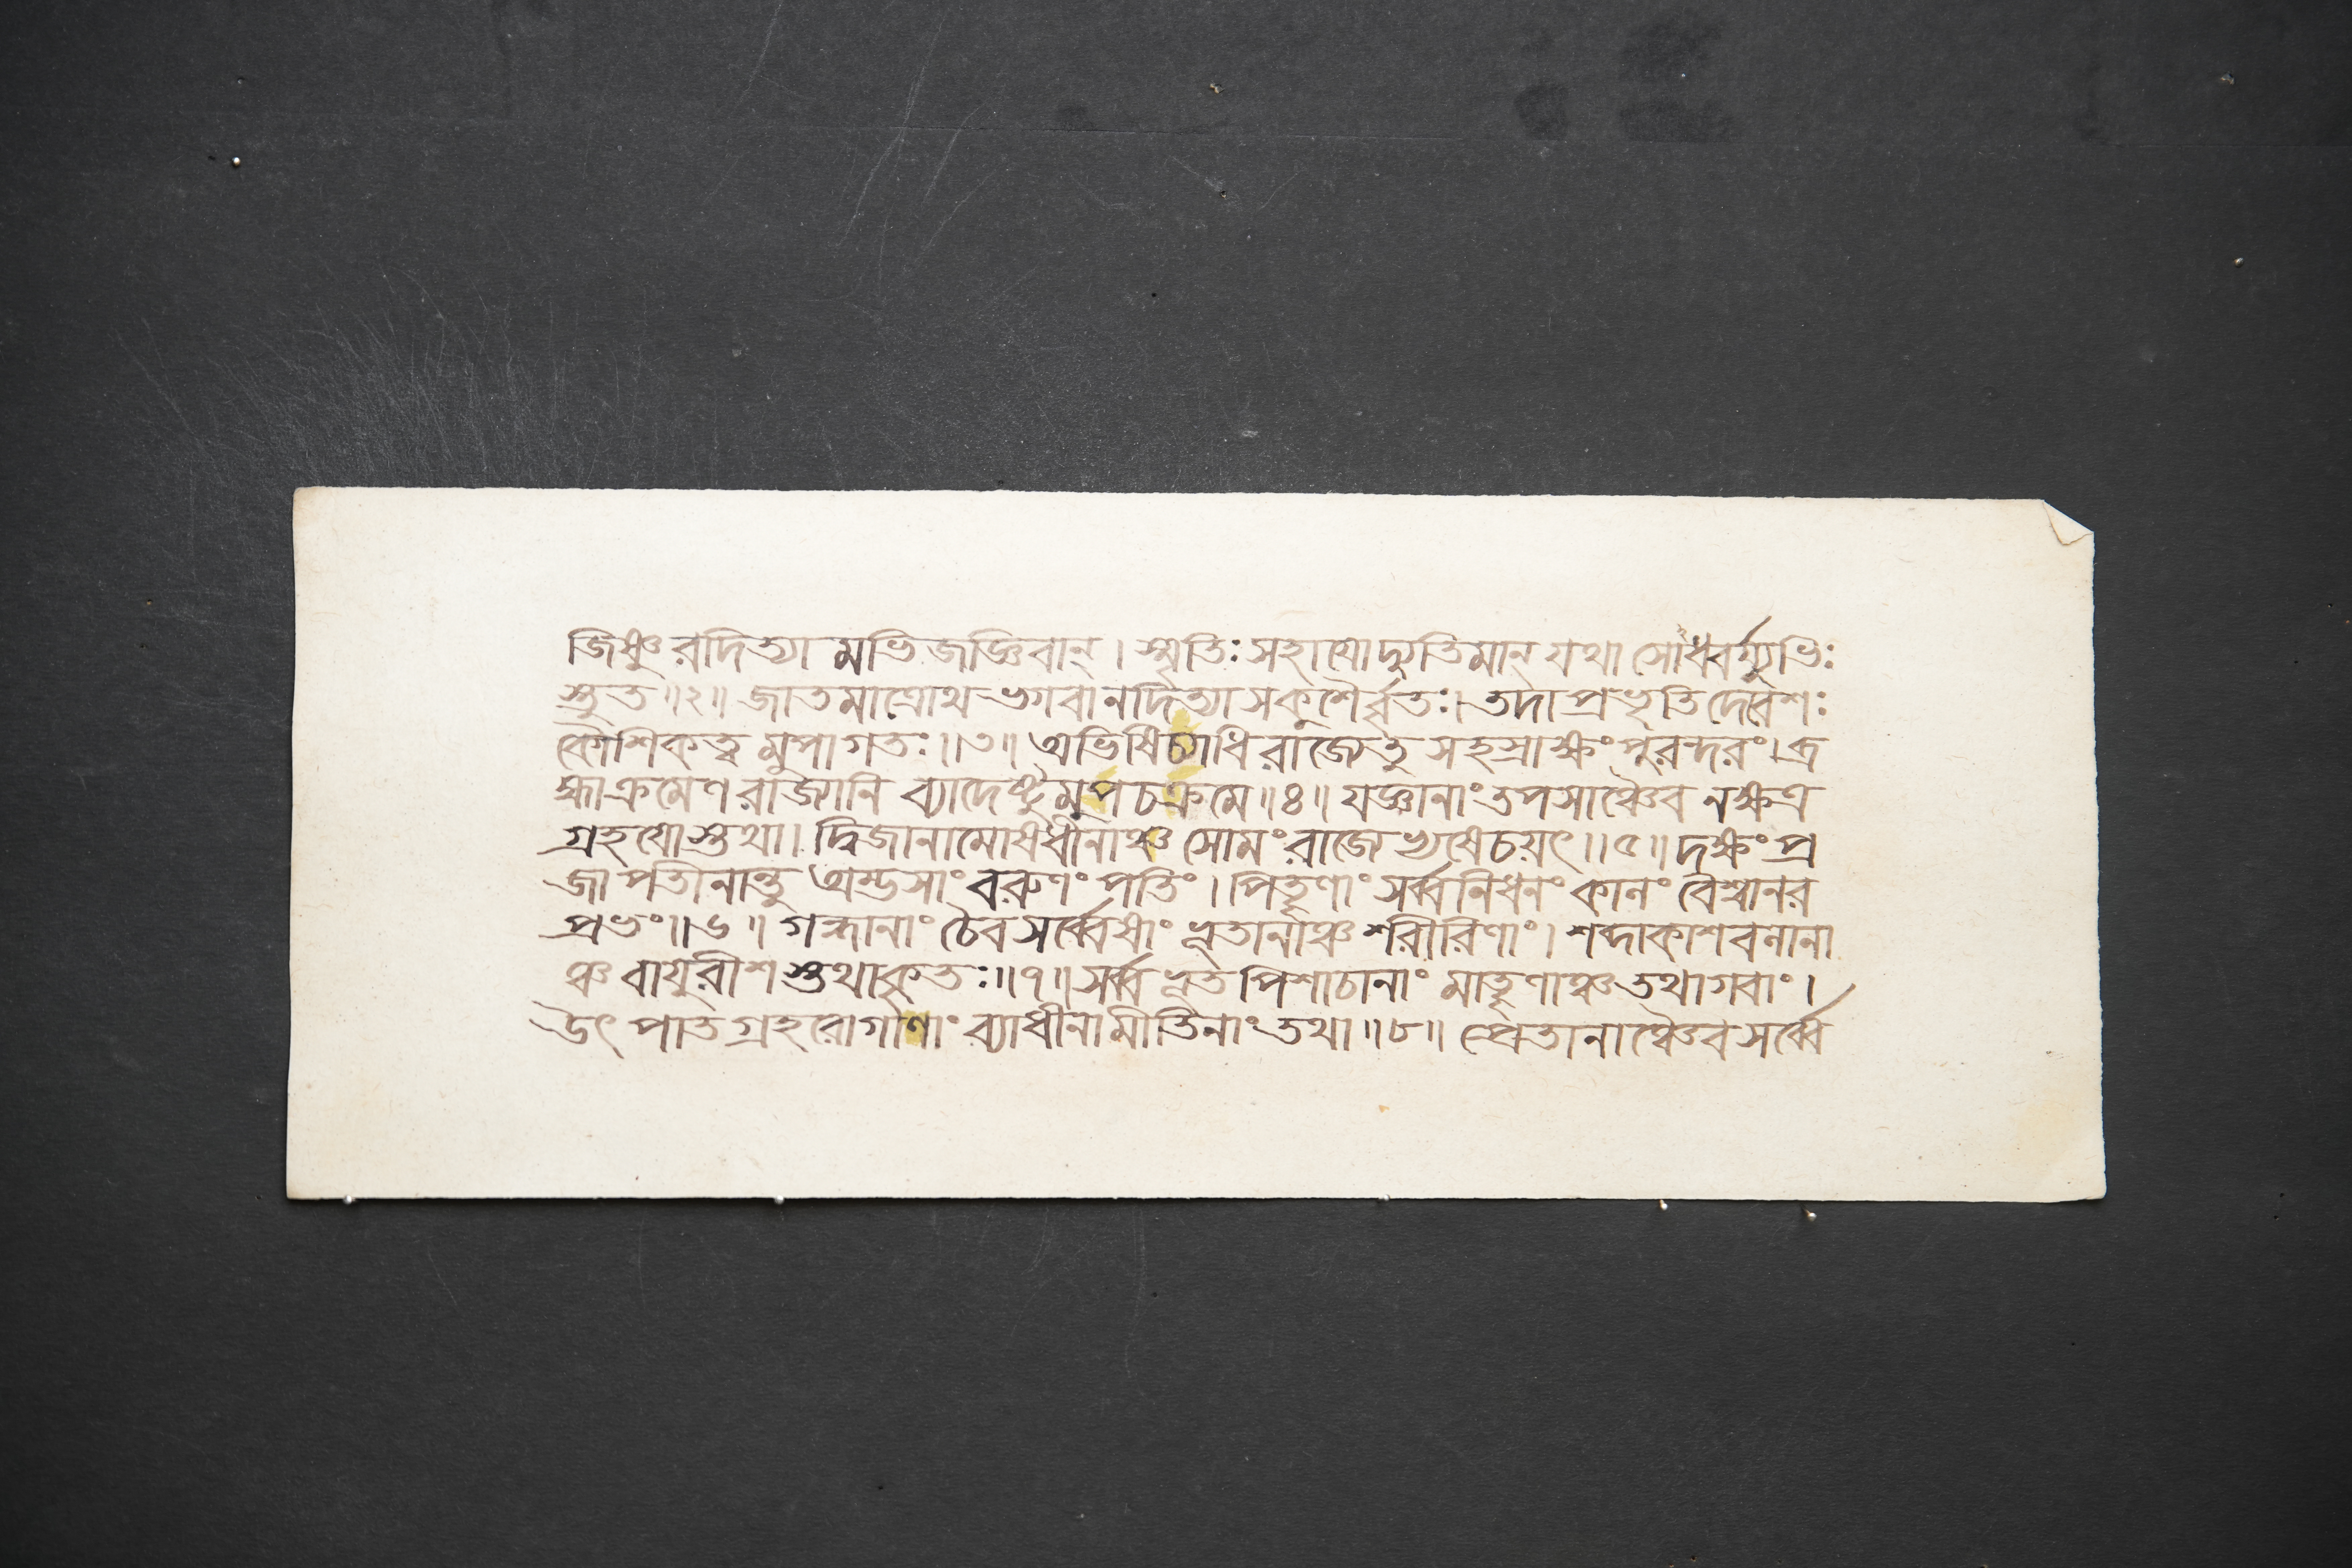 জিষ্ণুরদিত্যামভিজজ্ঞিবান্। স্মৃতিঃ সহাযো দ্যুতিমান্ যথা সোঽধ্বর্য্যুভিঃ
স্তুত॥২॥ জাতমাত্রোথ ভগবানদিত্যা সকুশৈর্বৃতঃ। তদা প্রভৃতি দেবেশঃ
কৌশিকত্ব মুপাগতঃ॥৩॥ অভিষিচ্যাধিরাজ্যেতু সহস্রাক্ষং পুরন্দরং। ব্র
হ্মা ক্রমেণ রাজ্যানি ব্যাদেষ্টুমুপচক্রমে॥৪॥ যজ্ঞানাং তপসাঞ্চৈব নক্ষত্র
গ্রহযোস্তথা। দ্বিজানামোষধীনাঞ্চ সোমং রাজ্যেভ্যষেচয়ৎ॥৫॥ দক্ষং প্র
জাপতীনান্তু অম্ভসাং বরুণং পতিং। পিতৄণাং সর্ব্বনিধনং কালং বৈশ্বানর
প্রভং॥৬॥ গন্ধানাং চৈব সর্ব্বেষাং ভূতানাঞ্চ শরীরিণাং। শব্দাকাশবলানা
ঞ্চ বাযুরীশস্তথাকৃতঃ॥৭॥ সর্ব্বভূতপিশাচানাং মাতৄণাঞ্চ তথা গবাং।
উৎপাতগ্রহরোগাণাং ব্যাধীনামীতিনাং তথা॥৮॥ প্রেতানাঞ্চৈব সর্ব্বে